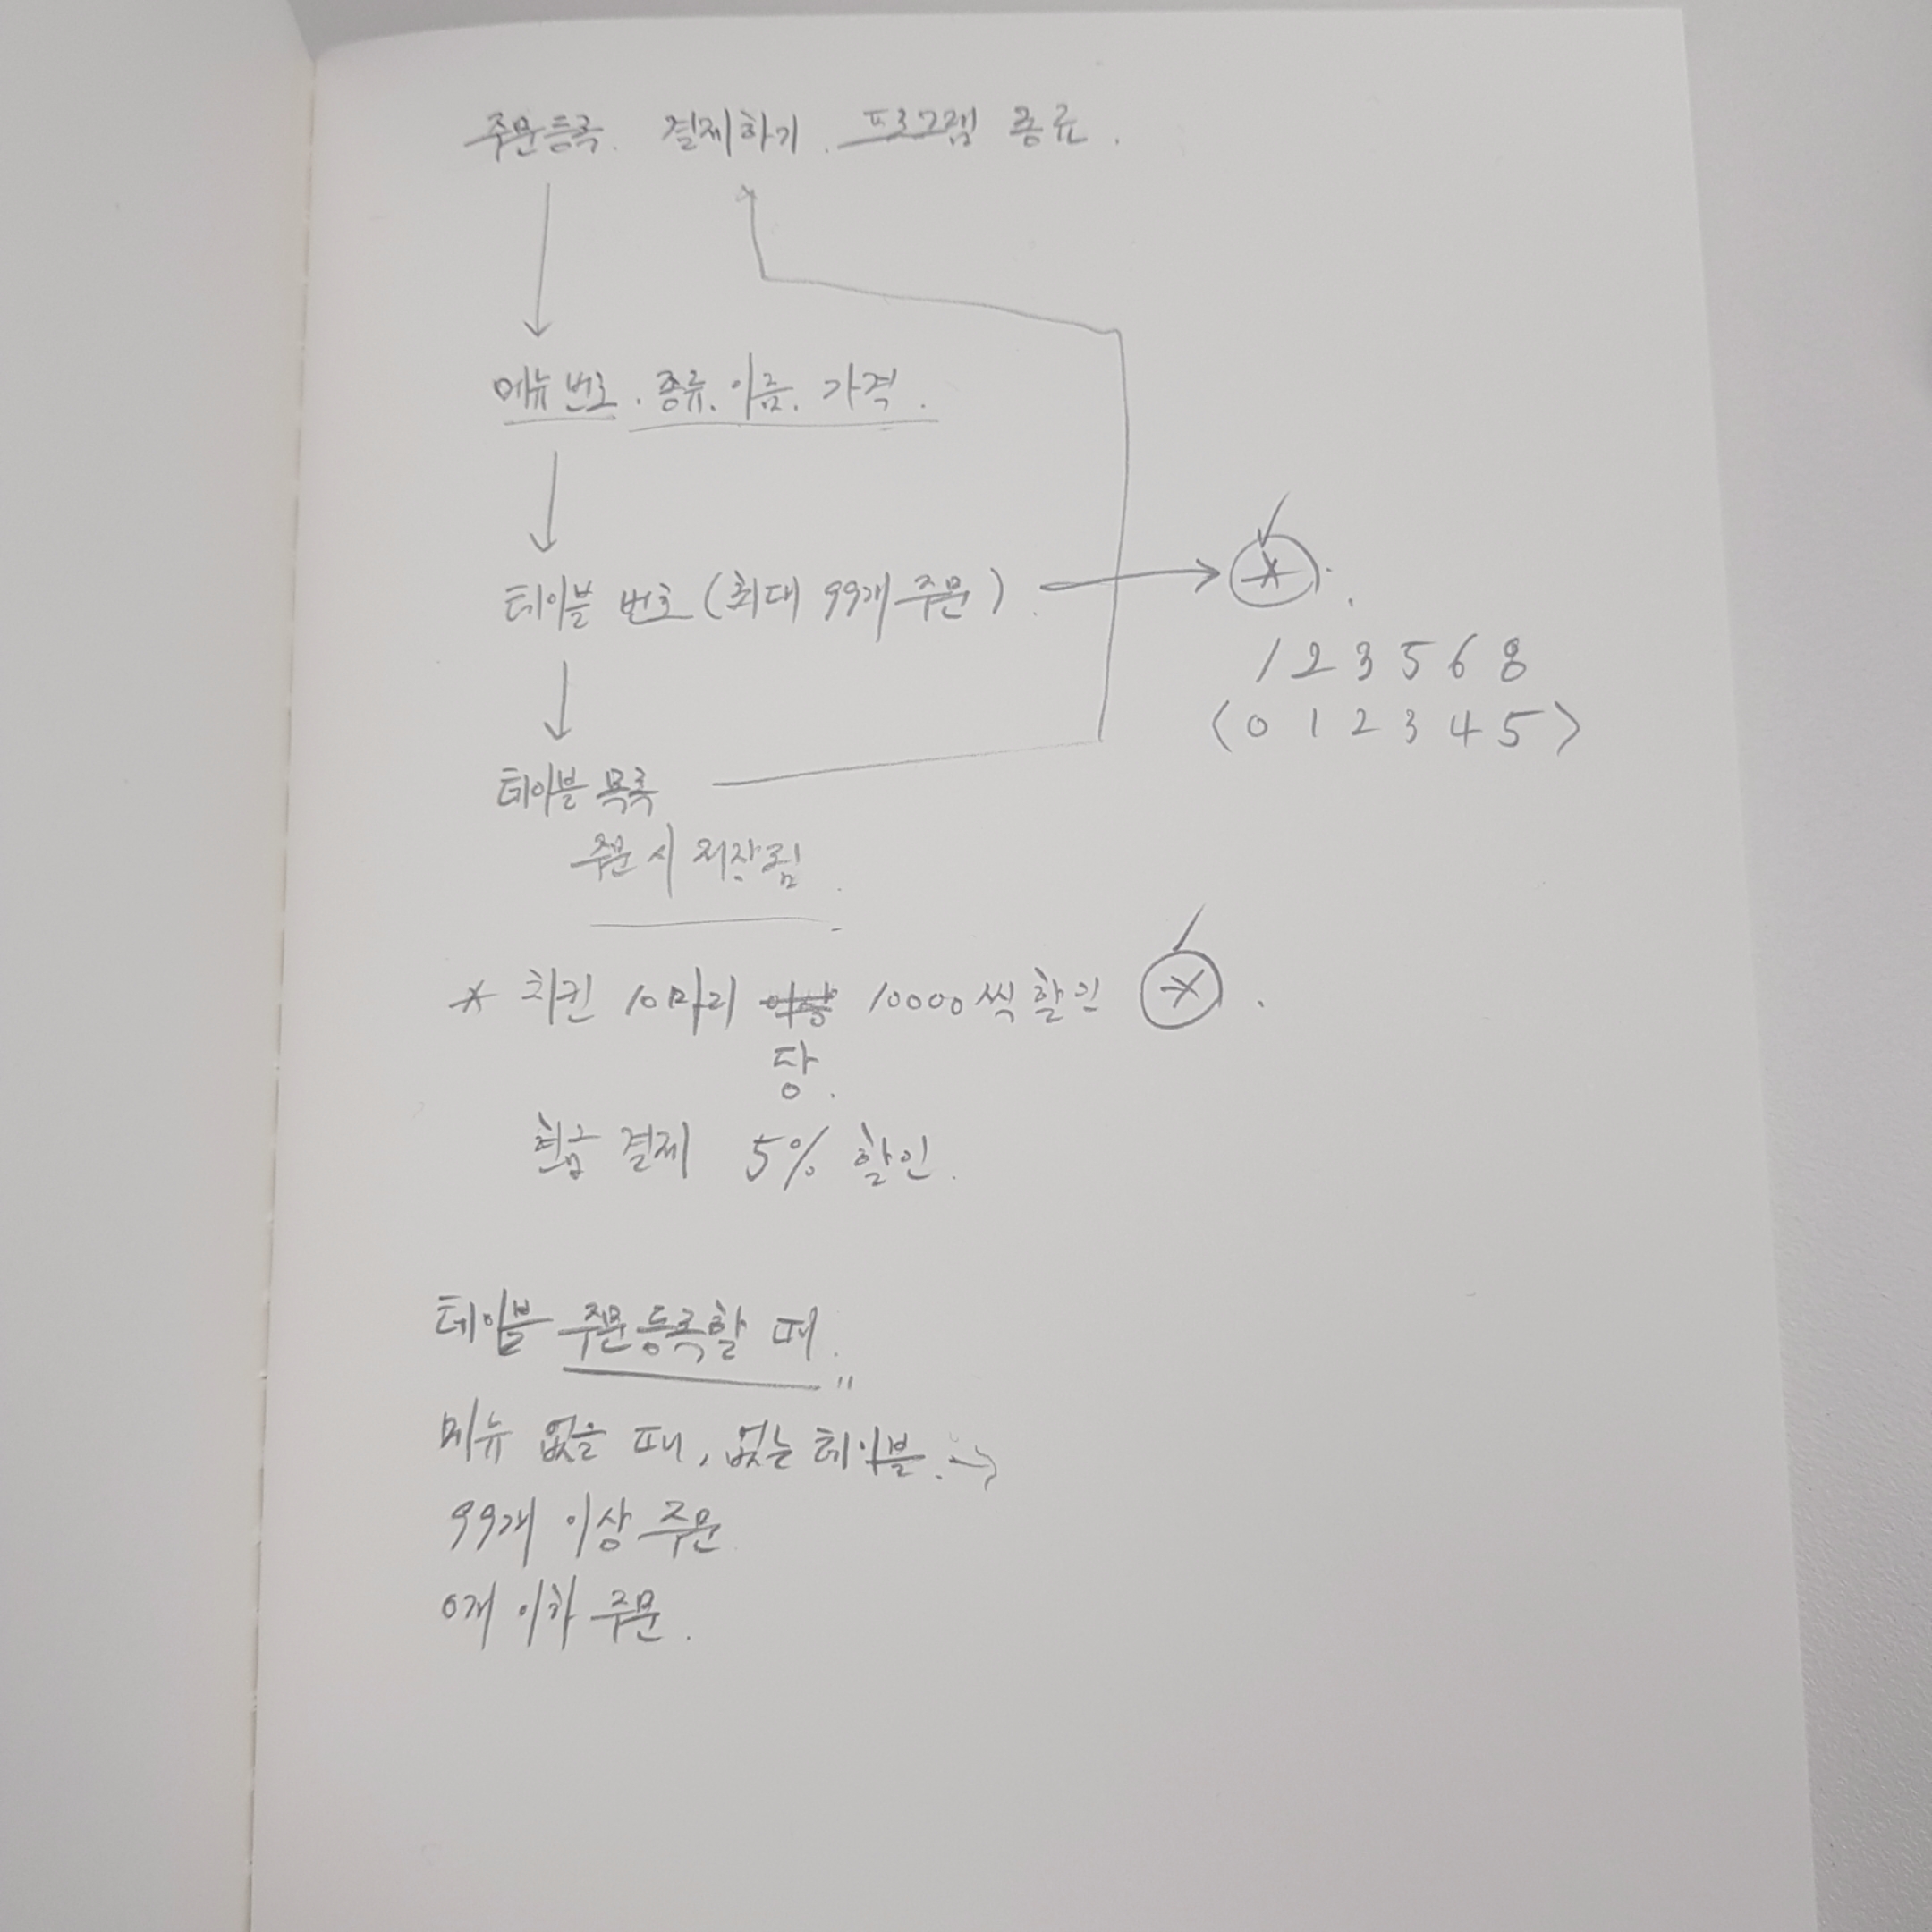 주문등록. 결제하기. 프로그램 종료.
메뉴 번호. 종류. 이름. 가격.
테이블 번호 (최대 99개 주문).
1 2 3 5 6 8
<0 1 2 3 4 5>
테이블 목록
주문 시 저장됨.
* 치킨 10마리 이상 10000씩 할인 *.
당.
현금 결제 5% 할인.
테이블 주문등록할 때.
메뉴 없을 때, 없는 테이블.
99개 이상 주문.
0개 이하 주문.